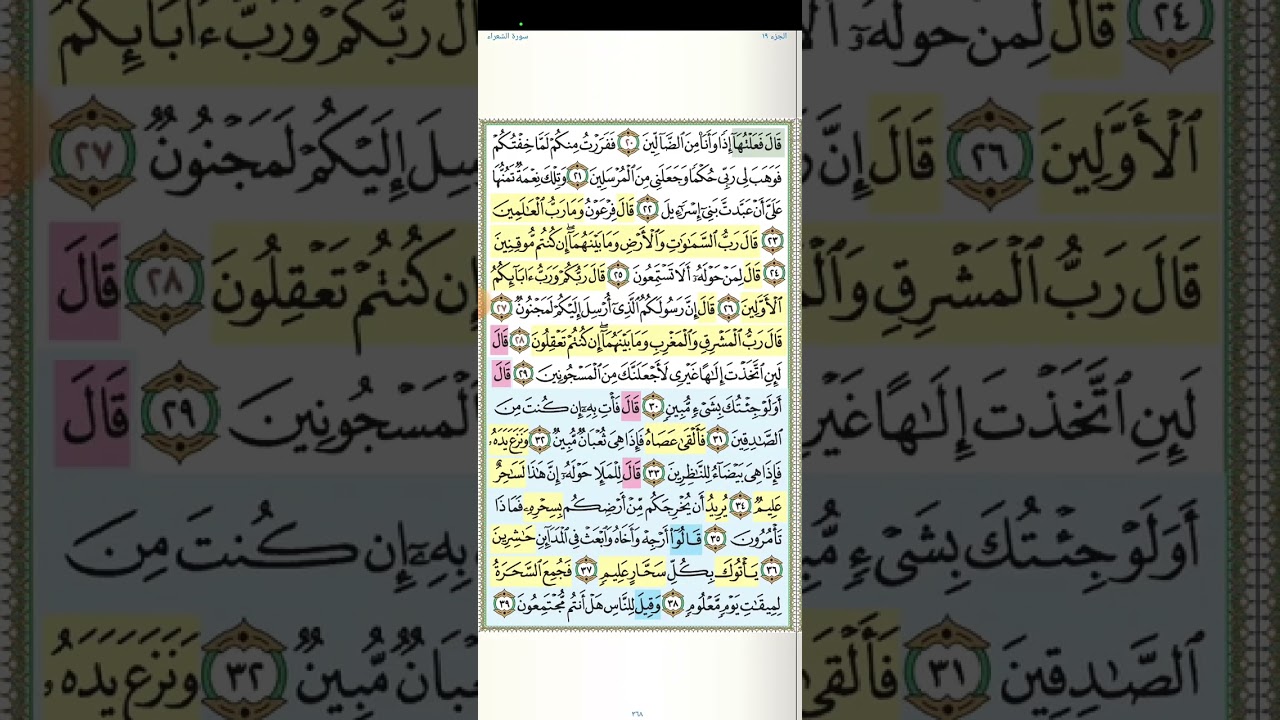 الجزء ١٩
سورة الشعراء
قَالَ فَعَلْتُهَآ إِذًا وَأَنَا۠ مِنَ ٱلضَّآلِّينَ ٢٠ فَفَرَرْتُ مِنكُمْ لَمَّا خِفْتُكُمْ
فَوَهَبَ لِى رَبِّى حُكْمًا وَجَعَلَنِى مِنَ ٱلْمُرْسَلِينَ ٢١ وَتِلْكَ نِعْمَةٌ تَمُنُّهَا
عَلَىَّ أَنْ عَبَّدتَّ بَنِىٓ إِسْرَٰٓءِيلَ ٢٢ قَالَ فِرْعَوْنُ وَمَا رَبُّ ٱلْعَٰلَمِينَ
٢٣ قَالَ رَبُّ ٱلسَّمَٰوَٰتِ وَٱلْأَرْضِ وَمَا بَيْنَهُمَآ ۖ إِن كُنتُم مُّوقِنِينَ
٢٤ قَالَ لِمَنْ حَوْلَهُۥٓ أَلَا تَسْتَمِعُونَ ٢٥ قَالَ رَبُّكُمْ وَرَبُّ ءَابَآئِكُمُ
ٱلْأَوَّلِينَ ٢٦ قَالَ إِنَّ رَسُولَكُمُ ٱلَّذِىٓ أُرْسِلَ إِلَيْكُمْ لَمَجْنُونٌ ٢٧
قَالَ رَبُّ ٱلْمَشْرِقِ وَٱلْمَغْرِبِ وَمَا بَيْنَهُمَآ ۖ إِن كُنتُمْ تَعْقِلُونَ ٢٨ قَالَ
لَئِنِ ٱتَّخَذْتَ إِلَٰهًا غَيْرِى لَأَجْعَلَنَّكَ مِنَ ٱلْمَسْجُونِينَ ٢٩ قَالَ
أَوَلَوْ جِئْتُكَ بِشَىْءٍ مُّبِينٍ ٣٠ قَالَ فَأْتِ بِهِۦٓ إِن كُنتَ مِنَ
ٱلصَّٰدِقِينَ ٣١ فَأَلْقَىٰ عَصَاهُ فَإِذَا هِىَ ثُعْبَانٌ مُّبِينٌ ٣٢ وَنَزَعَ يَدَهُۥ
فَإِذَا هِىَ بَيْضَآءُ لِلنَّٰظِرِينَ ٣٣ قَالَ لِلْمَلَإِ حَوْلَهُۥٓ إِنَّ هَٰذَا لَسَٰحِرٌ
عَلِيمٌ ٣٤ يُرِيدُ أَن يُخْرِجَكُم مِّنْ أَرْضِكُم بِسِحْرِهِۦ فَمَاذَا
تَأْمُرُونَ ٣٥ قَالُوٓا۟ أَرْجِهْ وَأَخَاهُ وَٱبْعَثْ فِى ٱلْمَدَآئِنِ حَٰشِرِينَ
٣٦ يَأْتُوكَ بِكُلِّ سَحَّارٍ عَلِيمٍ ٣٧ فَجُمِعَ ٱلسَّحَرَةُ
لِمِيقَٰتِ يَوْمٍ مَّعْلُومٍ ٣٨ وَقِيلَ لِلنَّاسِ هَلْ أَنتُم مُّجْتَمِعُونَ ٣٩
٣٦٨